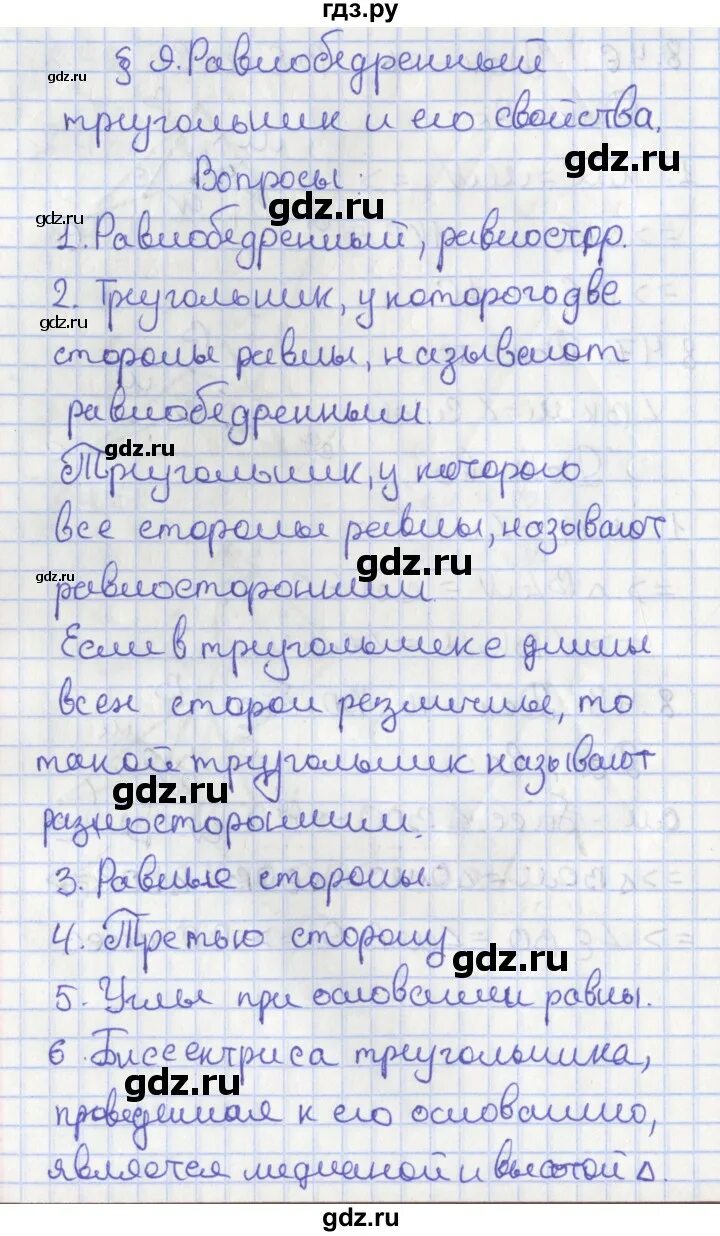 гдз.ру
§ 9. Равнобедренный
gdz.ru
треугольник и его свойства.
gdz.ru
Вопросы:
gdz.ru
gdz.ru
1. Равнобедренный, равностор.
2. Треугольник, у которого две
gdz.ru
стороны равны, называют
равнобедренным.
gdz.ru
Треугольник, у которого
все стороны равны, называют
gdz.ru
gdz.ru
равносторонним.
Если в треугольнике длины
всех сторон различные, то
такой треугольник называют
gdz.ru
разносторонним.
3. Равные стороны.
4. Третью сторону
gdz.ru
5. Углы при основании равны.
6. Биссектриса треугольника,
gdz.ru
проведенная к его основанию,
является медианой и высотой Δ.
gdz.ru